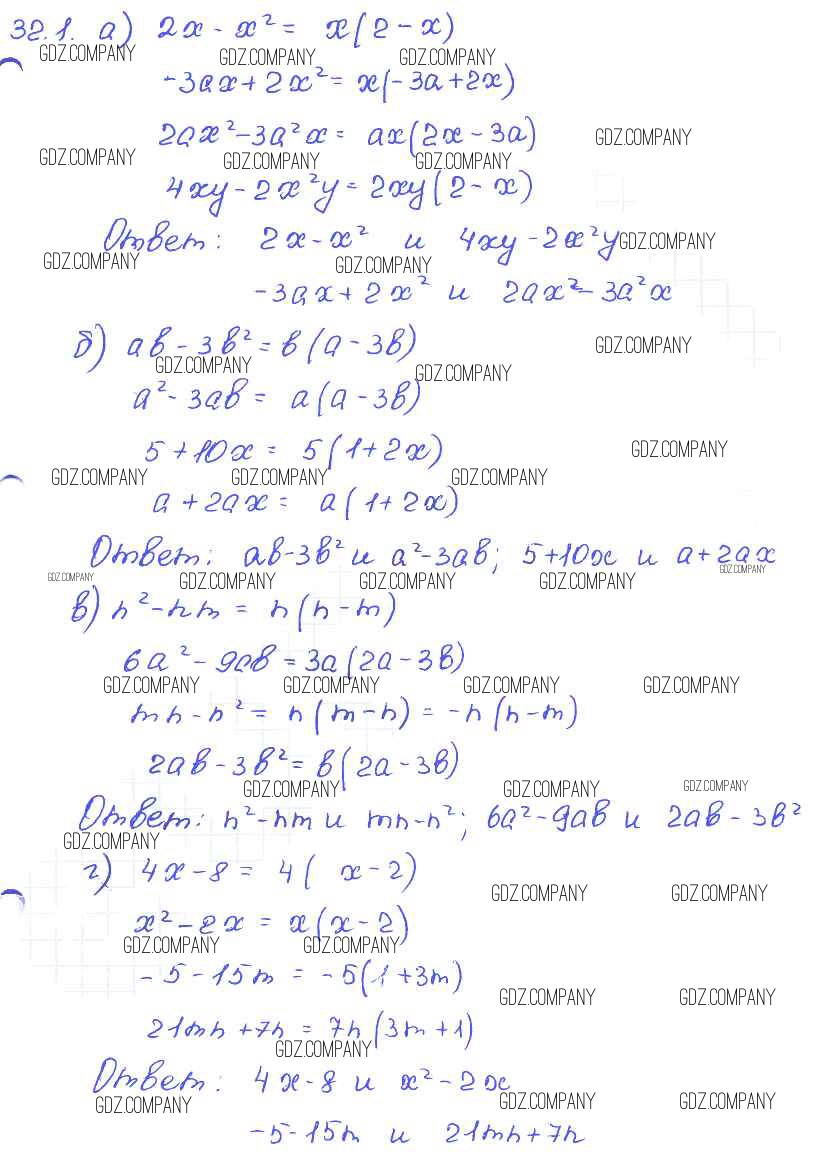 32.1. а) 2x - x² = x(2 - x)
GDZ.COMPANY GDZ.COMPANY GDZ.COMPANY
-3ax + 2x² = x(-3a + 2x)
2ax² - 3a²x = ax(2x - 3a) GDZ.COMPANY
GDZ.COMPANY GDZ.COMPANY GDZ.COMPANY
4xy - 2x²y = 2xy(2 - x)
Ответ: 2x - x² и 4xy - 2x²y GDZ.COMPANY
GDZ.COMPANY GDZ.COMPANY
-3ax + 2x² и 2ax² - 3a²x
б) ab - 3b² = b(a - 3b) GDZ.COMPANY
GDZ.COMPANY GDZ.COMPANY
a² - 3ab = a(a - 3b)
5 + 10x = 5(1 + 2x) GDZ.COMPANY
GDZ.COMPANY GDZ.COMPANY GDZ.COMPANY
a + 2ax = a(1 + 2x)
Ответ: ab - 3b² и a² - 3ab; 5 + 10x и a + 2ax
GDZ.COMPANY GDZ.COMPANY GDZ.COMPANY GDZ.COMPANY GDZ.COMPANY
в) n² - nm = n(n - m)
6a² - 9ab = 3a(2a - 3b)
GDZ.COMPANY GDZ.COMPANY GDZ.COMPANY GDZ.COMPANY
mn - n² = n(m - n) = -n(n - m)
2ab - 3b² = b(2a - 3b)
GDZ.COMPANY GDZ.COMPANY GDZ.COMPANY
Ответ: n² - nm и mn - n²; 6a² - 9ab и 2ab - 3b²
GDZ.COMPANY
г) 4x - 8 = 4( x - 2)
GDZ.COMPANY GDZ.COMPANY
x² - 2x = x(x - 2)
GDZ.COMPANY GDZ.COMPANY
-5 - 15m = -5(1 + 3m)
GDZ.COMPANY GDZ.COMPANY
21mn + 7n = 7n(3m + 1)
GDZ.COMPANY
Ответ: 4x - 8 и x² - 2x
GDZ.COMPANY GDZ.COMPANY GDZ.COMPANY
-5 - 15m и 21mn + 7n